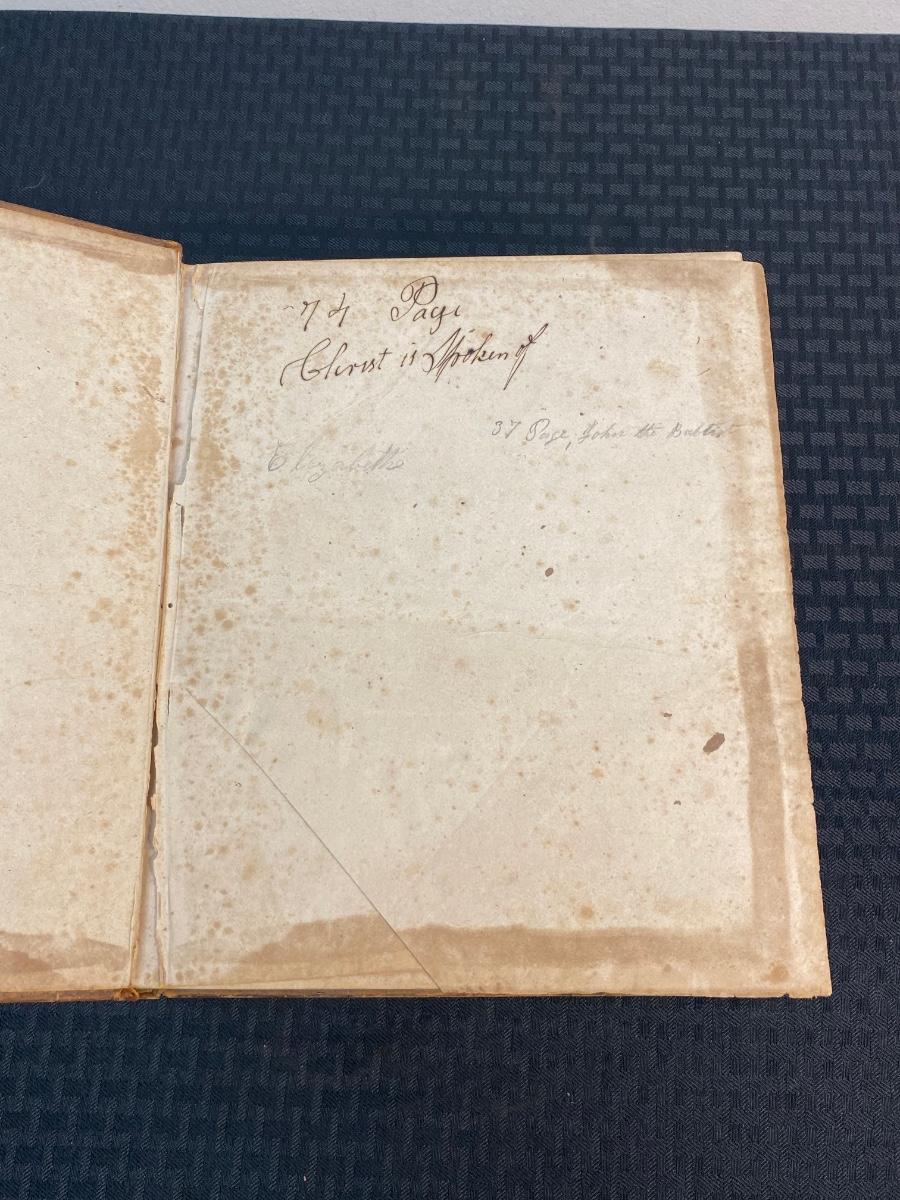 74 Page
Christ is Spoken of
37 Page, John the Babtist
Elizabeth